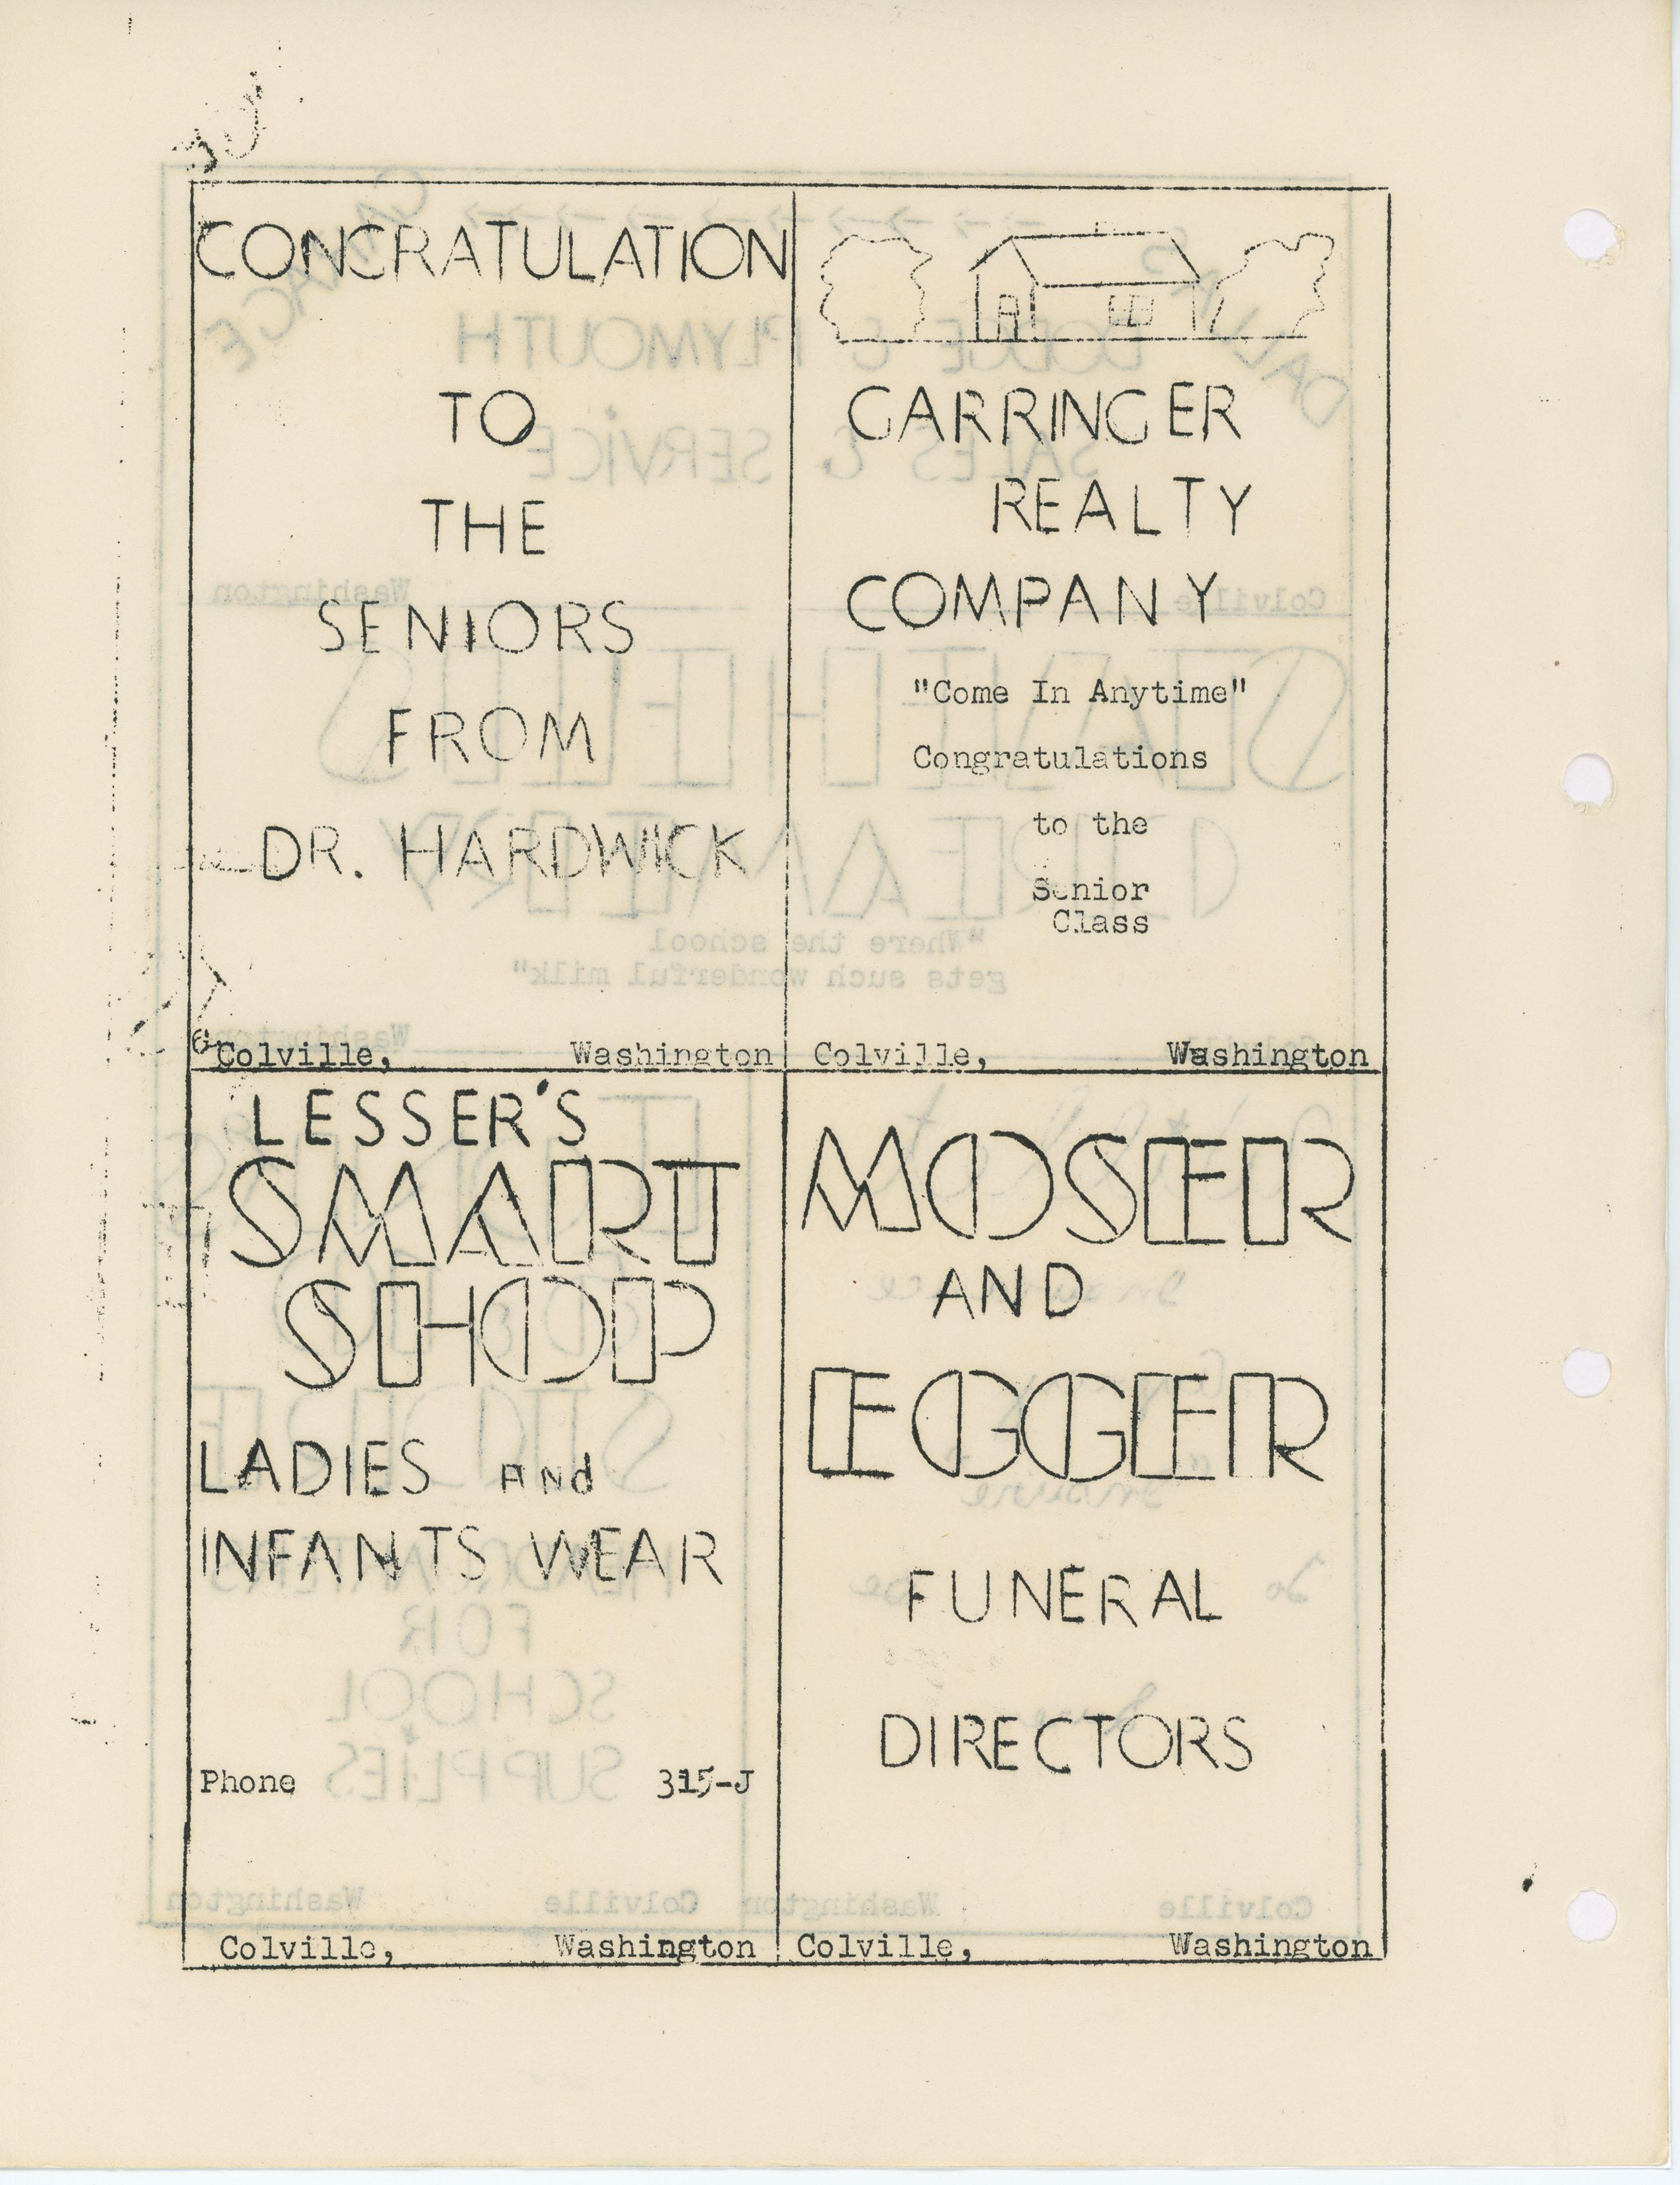 CONGRATULATION
TO
THE
SENIORS
FROM
DR. HARDWICK
Colville, Washington
GARRINGER
REALTY
COMPANY
"Come In Anytime"
Congratulations
to the
Senior
Class
Colville, Washington
LESSER'S
SMART
SHOP
LADIES AND
INFANTS WEAR
Phone 315-J
Colville, Washington
MOSER
AND
EGGER
FUNERAL
DIRECTORS
Colville, Washington